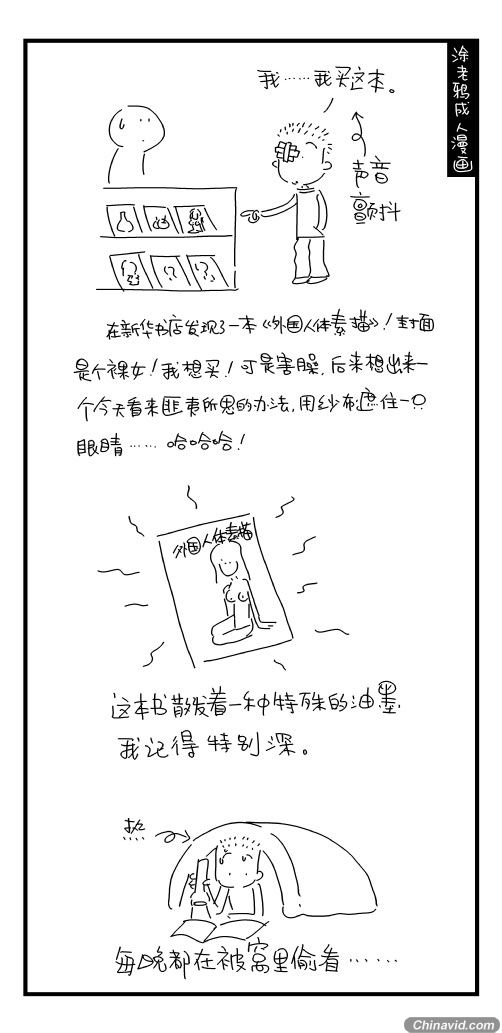 涂老鸦成人漫画
我……我买这本。
声音
颤抖
在新华书店发现了一本《外国人体素描》！封面
是个裸女！我想买！可是害臊，后来想出来一
个今天看来匪夷所思的办法，用纱布遮住一只
眼睛……哈哈哈！
外国人体素描
这本书散发着一种特殊的油墨，
我记得特别深。
热
每晚都在被窝里偷看……
Chinavid.com